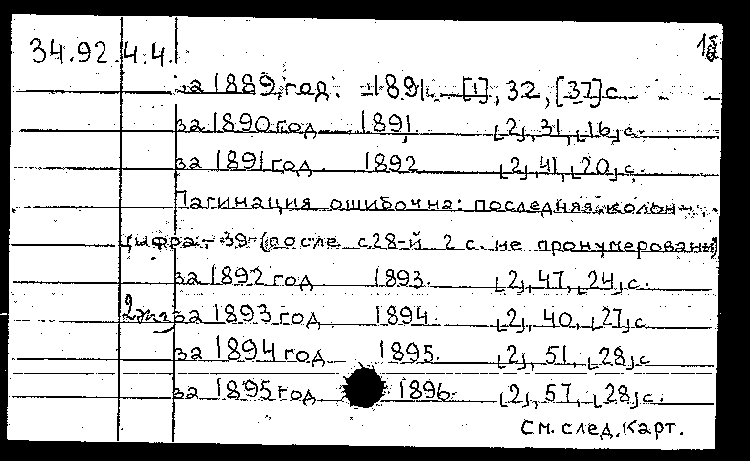 34.92 4.4.
за 1889 год. 1891. [1], 32, [37] с.
за 1890 год 1891. [2], 31, [16] с.
за 1891 год 1892 [2], 41, [20] с.
Пагинация ошибочна: последняя колон-
цифра - 39 (после с 28-й 2 с. не пронумерованы)
за 1892 год 1893. [2], 47, [24] с.
2 экз за 1893 год 1894. [2], 40, [27] с
за 1894 год 1895. [2], 51, [28] с
за 1895 год 1896. [2], 57, [28] с.
См. след. карт.